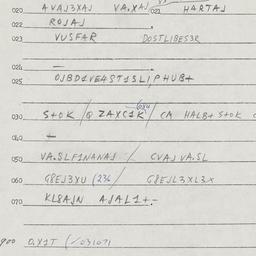 020 AVAJ3XAJ VA.XAJ 021 HARTAJ
022 ROJAJ .
023 VUSFAR DOSTLIBES3R
024 —
025 OJBD1VE4ST1SLIPHUB+
030 S+OK / Q ZAXC1K / CA HALB+ S+OK
040
050 VA.SLF1NANAJ / CVAJ VA.SL
060 G8EJ3XU (234 / G8EJL3XL3X
070 KL8AJN AJAL1+.-
900 0.X1T (/031071